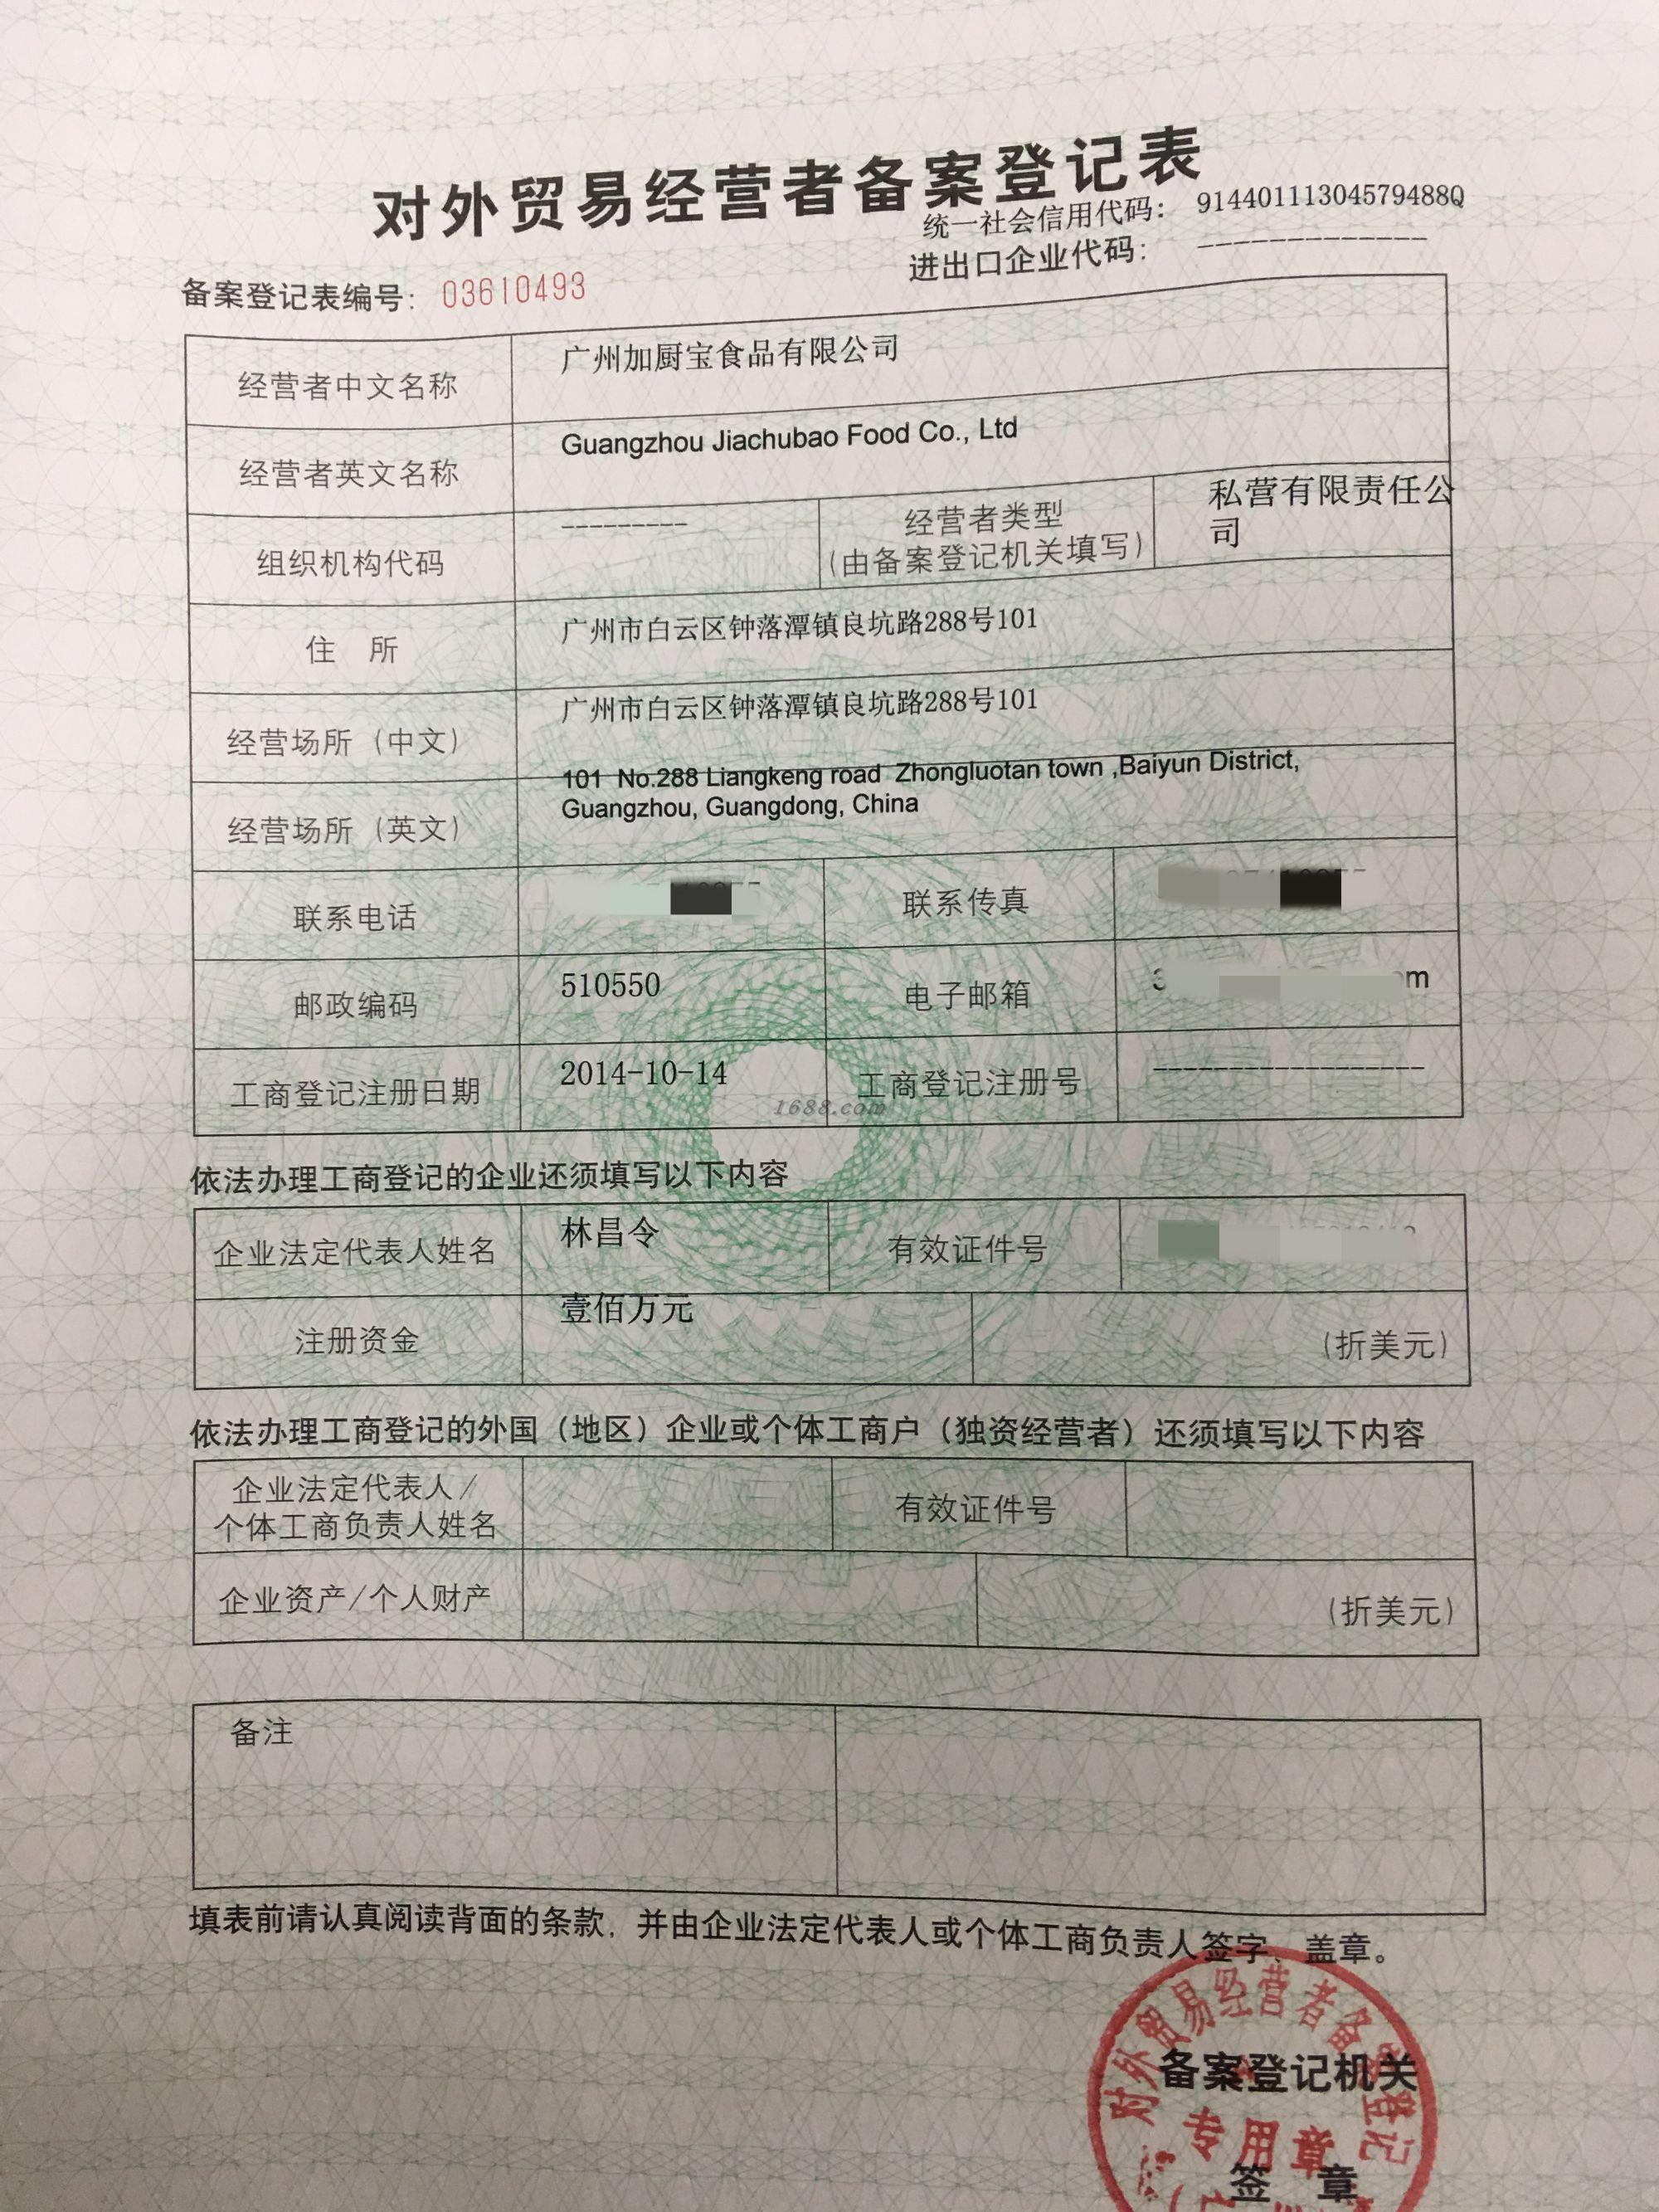 对外贸易经营者备案登记表
统一社会信用代码： 91440111304579488Q
进出口企业代码： -------------
备案登记表编号： 03610493
经营者中文名称 广州加厨宝食品有限公司
经营者英文名称 Guangzhou Jiachubao Food Co., Ltd
组织机构代码 --------- 经营者类型 私营有限责任公
(由备案登记机关填写) 司
住 所 广州市白云区钟落潭镇良坑路288号101
经营场所（中文） 广州市白云区钟落潭镇良坑路288号101
经营场所（英文） 101 No.288 Liangkeng road Zhongluotan town ,Baiyun District,
Guangzhou, Guangdong, China
联系电话 联系传真
邮政编码 510550 电子邮箱 3 m
工商登记注册日期 2014-10-14 工商登记注册号 ------------------
1688.com
依法办理工商登记的企业还须填写以下内容
企业法定代表人姓名 林昌令 有效证件号
注册资金 壹佰万元 （折美元）
依法办理工商登记的外国（地区）企业或个体工商户（独资经营者）还须填写以下内容
企业法定代表人/
个体工商负责人姓名 有效证件号
企业资产/个人财产 （折美元）
备注
填表前请认真阅读背面的条款，并由企业法定代表人或个体工商负责人签字、盖章。
对外贸易经营者备案登记
备案登记机关
专用章
签 章